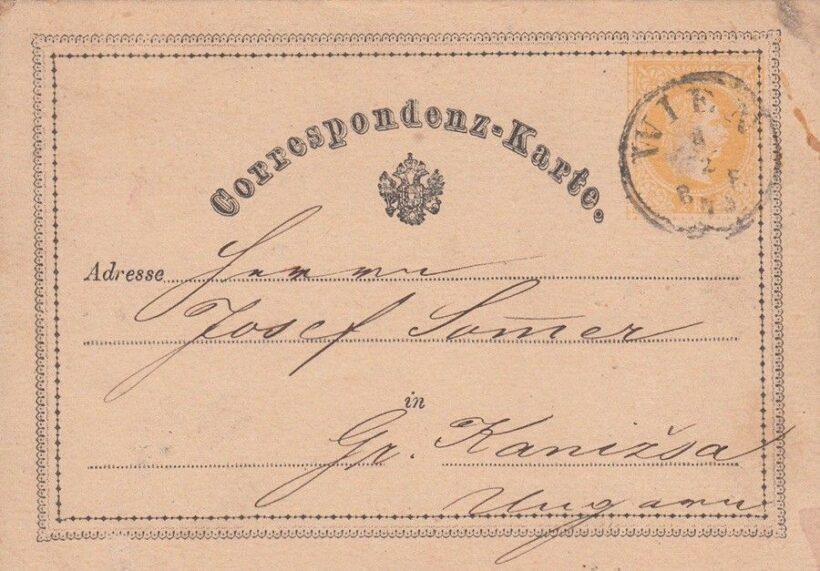 Correspondenz-Karte.
WIEN
Adresse Herrn
Josef Som̄er
in
Gr. Kanizsa
Ungarn